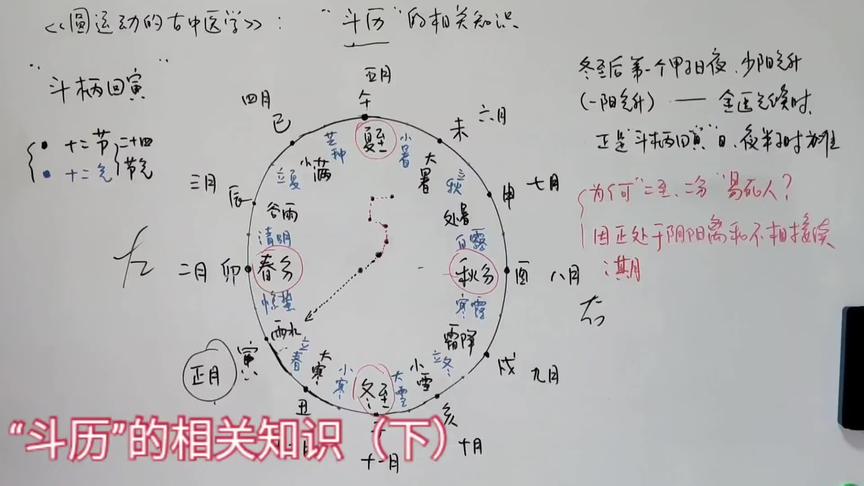 《圆运动的古中医学》："斗历"的相关知识
"斗柄回寅"
十二节
十二气
二十四
节气
五月
午
四月
巳
六月
未
三月
辰
七月
申
二月
卯
八月
酉
正月
寅
九月
戌
丑
十一月
十月
亥
夏至
芒种
小暑
小满
大暑
立夏
立秋
谷雨
处暑
清明
白露
春分
秋分
惊蛰
寒露
雨水
霜降
立春
立冬
大寒
小雪
小寒
大雪
冬至
左
右
冬至后第一个甲子日夜，少阳气升
(一阳气升) —— 金匮
正是"斗柄回寅"日，夜半子时为准
为何"二至、二分"易死人？
因正处于阴阳离和不相接续
之期
"斗历"的相关知识（下）